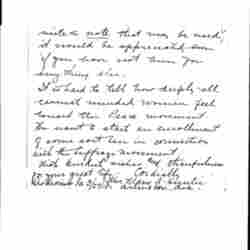 write a note that may be used,
it would be appreciated even
if you have not time for
any thing else.
It is hard to tell how deeply all
earnest minded women feel
toward this Peace movement
We want to start an enrollment
of some sort here in connection
with the suffrage movement
With kindest wishes and thankfulness
for your great
Cordially